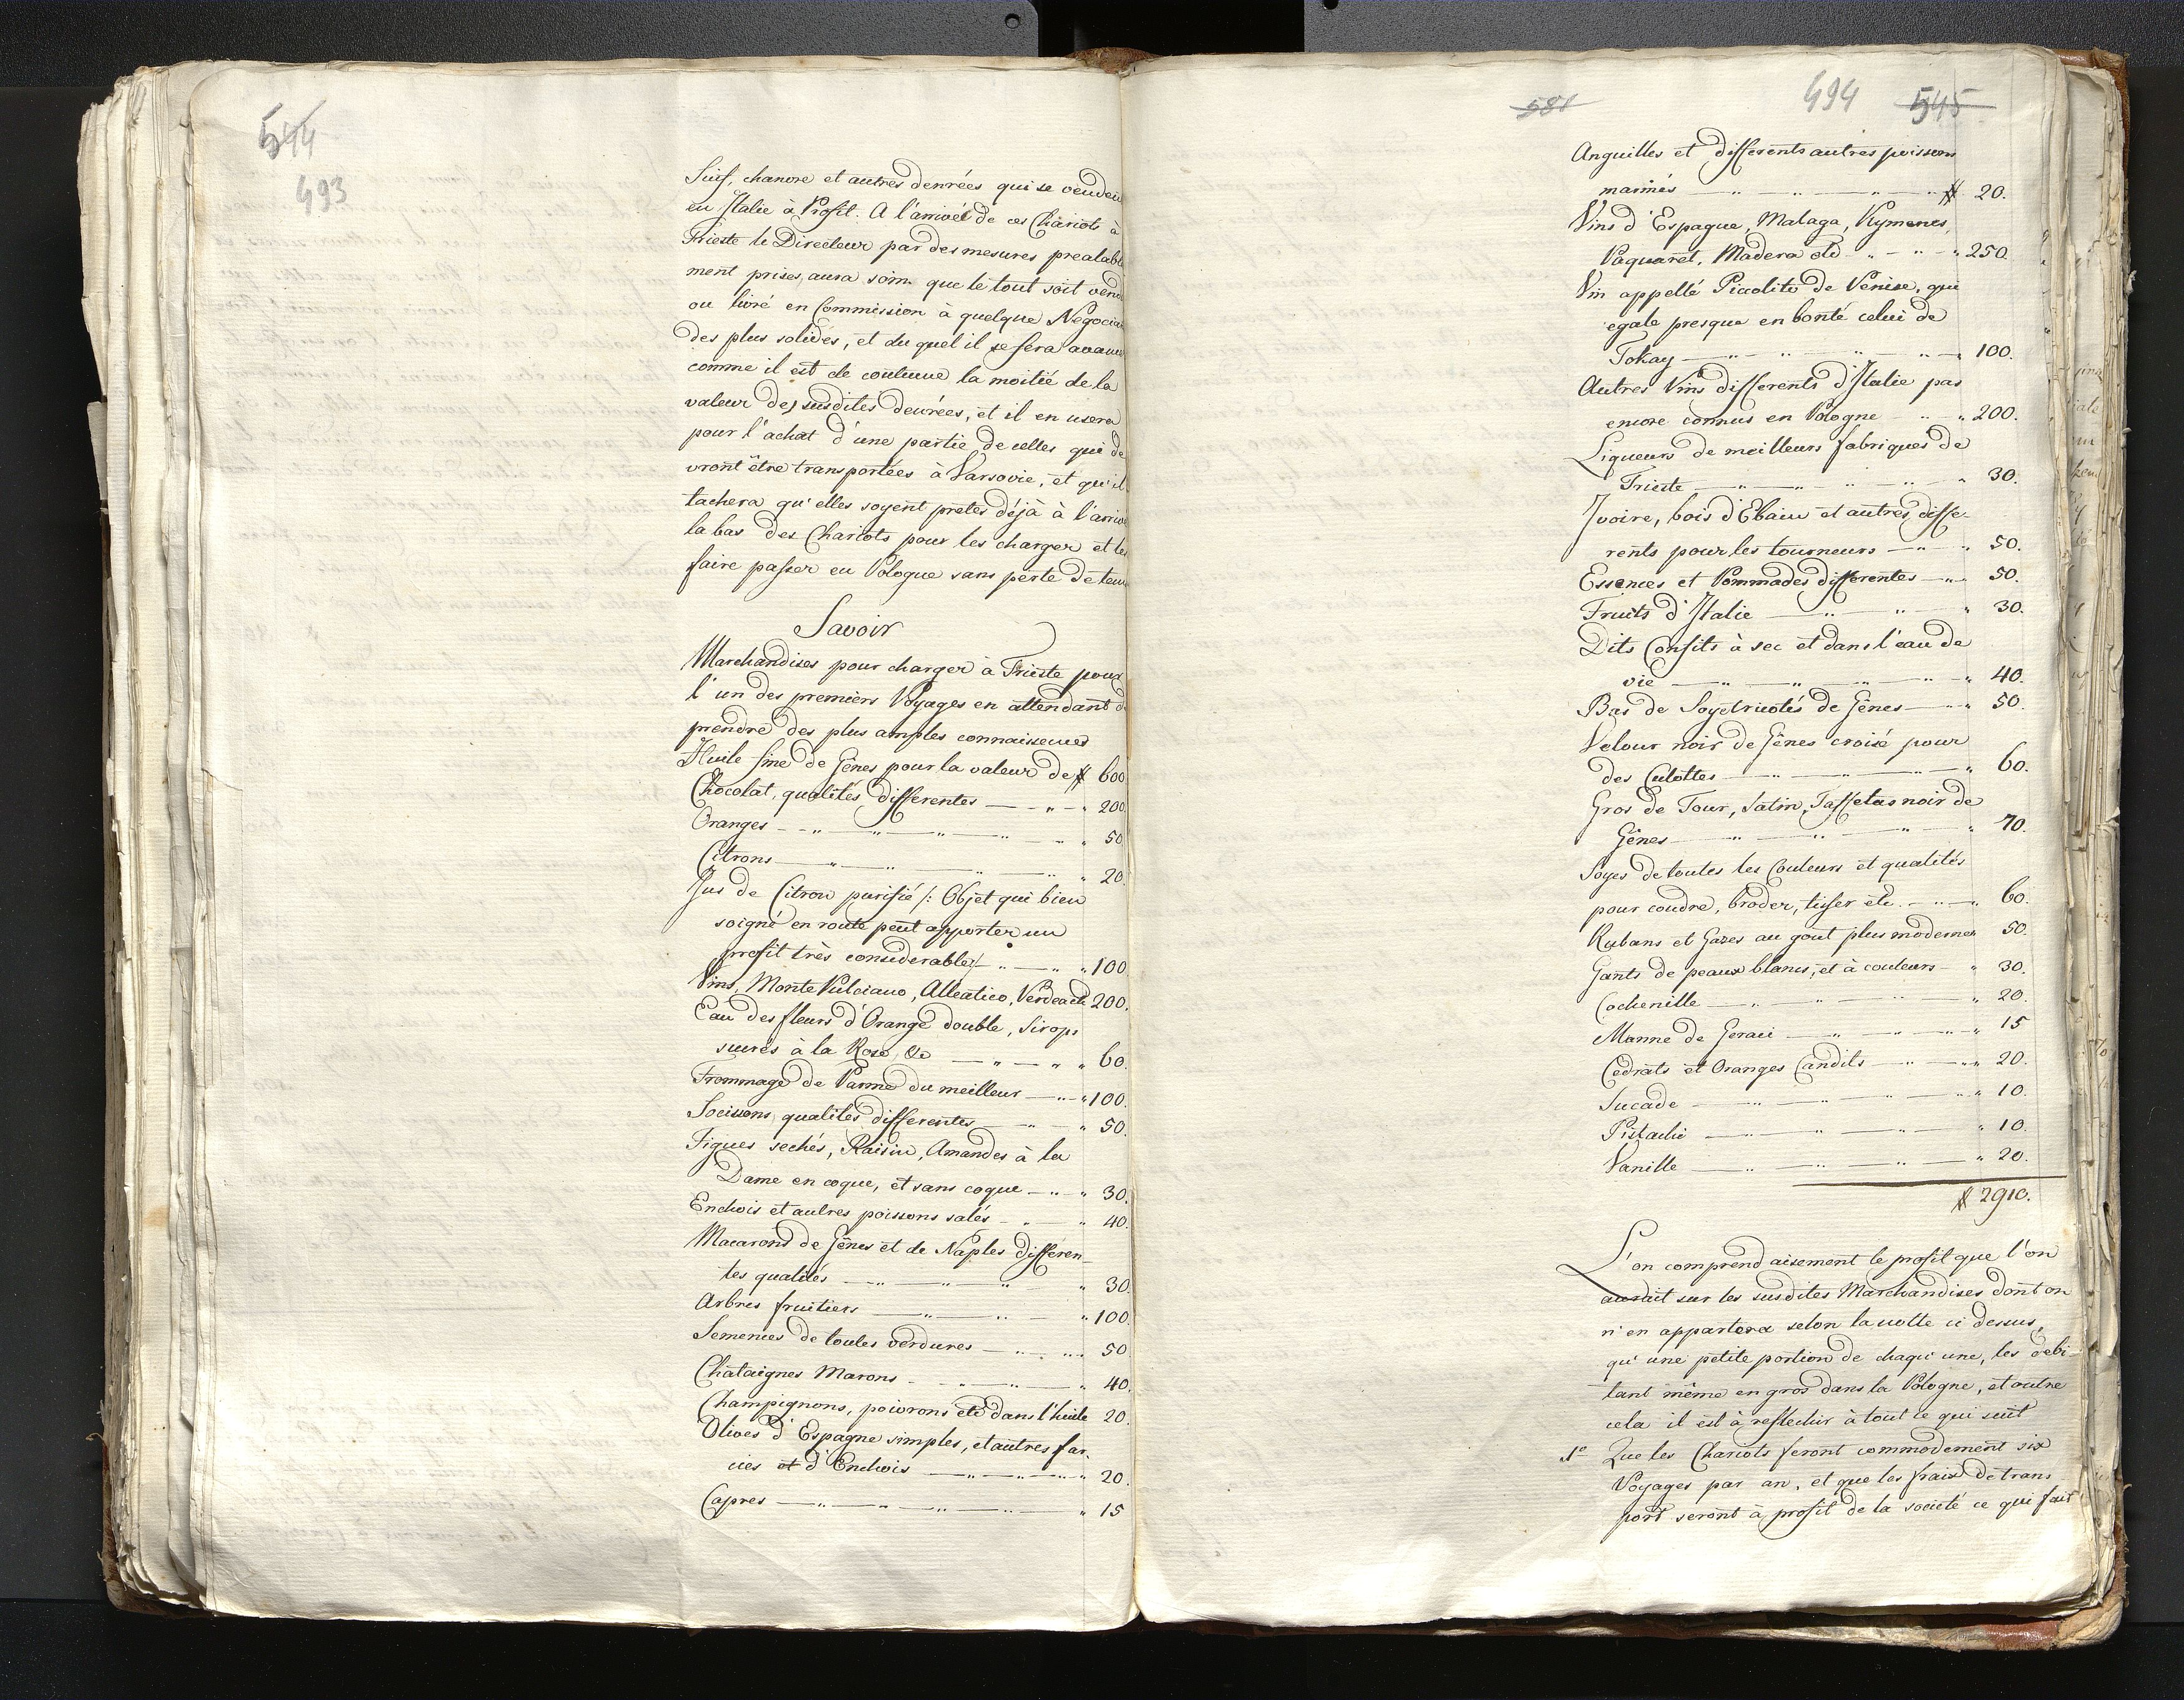 544
493
Suif, chanvre et autres denrées qui se venden
en Italie à Profit. A l'arrivée de ces Chariots à
Trieste le Directeur par des mesures prealabl
ment prises, aura soin que le tout soit vend
ou livré en Commission à quelque Negocia
des plus solides, et du quel il se fera avanc
comme il est de coutume la moitié de la
valeur des susdites denrées, et il en usera
pour l'achat d'une partie de celles qui de
vront être transportées à Varsovie, et qu'il
tachera qu'elles soyent pretes déjà à l'arriv
la bas des Chariots pour les charger et les
faire passer en Pologne sans perte de tem
Savoir
Marchandises pour charger à Trieste pour
l'un des premiers Voyages en attendant d
prendre des plus amples connaissences
Huile fine de Gênes pour la valeur de # 600
Chocolat, qualités differentes — " — " 200
Oranges - - " — " — " — " — " 50
Citrons — " — " — " — " 20
Jus de Citron purifié /: Objet qui bien
soigné en route peut apporter un
profit très considerable :/ - " — " " 100
Vins, Monte Pulciano, Alleatico, Verdea etc 200.
Eau des fleurs d'Orange double, Sirops
sucrés à la Rose, &c — " — " " 60.
Frommage de Parme du meilleur — " — " 100.
Socissons qualités differentes — " — " 50.
Figues sechés, Raisin, Amandes à la
Dame en coque, et sans coque — " — " 30.
Enchois et autres poissons salés - " — " 40.
Macarons de Gênes et de Naples differen
tes qualités — " — " — " " 30
Arbres fruitiers — " — " — " 100.
Semences de toutes verdures — " — " 50.
Chataignes Marons - " — " — " 40.
Champignons, poivrons etc dans l'huile 20.
Olives d'Espagne simples, et autres far.
cies et d'Enchois — " — " — " 20.
Capres — " — " — " — " 15
581
494 545
Anguilles et differents autres poissons
marinés — " — " — " — " # 20.
Vins d'Espagne, Malaga, Xymenes,
Paquaret, Madera etc - " — " — " 250.
Vin appellé Piccolito de Venise, qui
egale presque en bonté celui de
Tokay — " — " — " — " 100.
Autres Vins differents d'Italie pas
encore connus en Pologne — " — " 200.
Liqueurs de meilleurs fabriques de
Trieste — " — " — " — " 30.
Ivoire, bois d'Ebain et autres diffe-
rents pour les tourneurs — " — " 50.
Essences et Pommades differentes — " 50.
Fruits d'Italie — " — " — " 30.
Dits Confits à sec et dans l'eau de
vie — " — " — " — " 40.
Bas de Soye tricotés de Gênes — " 50.
Velour noir de Gênes croisé pour
des Culottes — " — " — " 60.
Gros de Tour, Satin, Taffetas noir de
Gênes — " — " — " 70.
Soyes de toutes les Couleurs et qualités
pour coudre, broder, tisser etc. — " — " 60.
Rubans et Gazes au gout plus modernes 50.
Gants de peaux blancs, et à couleurs — " 30.
Cochenille — " — " — " — " 20.
Manne de Geraci — " — " — " 15
Cedrats et Oranges Candits — " — " 20.
Sucade — " — " — " — " 10.
Pistachi — " — " — " — " 10.
Vanille — " — " — " — " 20.
# 2910.
L'on comprend aisement le profit que l'on
auroit sur les susdites Marchandises dont on
n'en apportera selon la notte ci dessus,
qu'une petite portion de chaqu'une, les debi-
tant même en gros dans la Pologne, et outre
cela il est à reflechir à tout ce qui suit
1° Que les Chariots feront commodement six
Voyages par an, et que les fraix de trans
port seront à profit de la societé ce qui fait